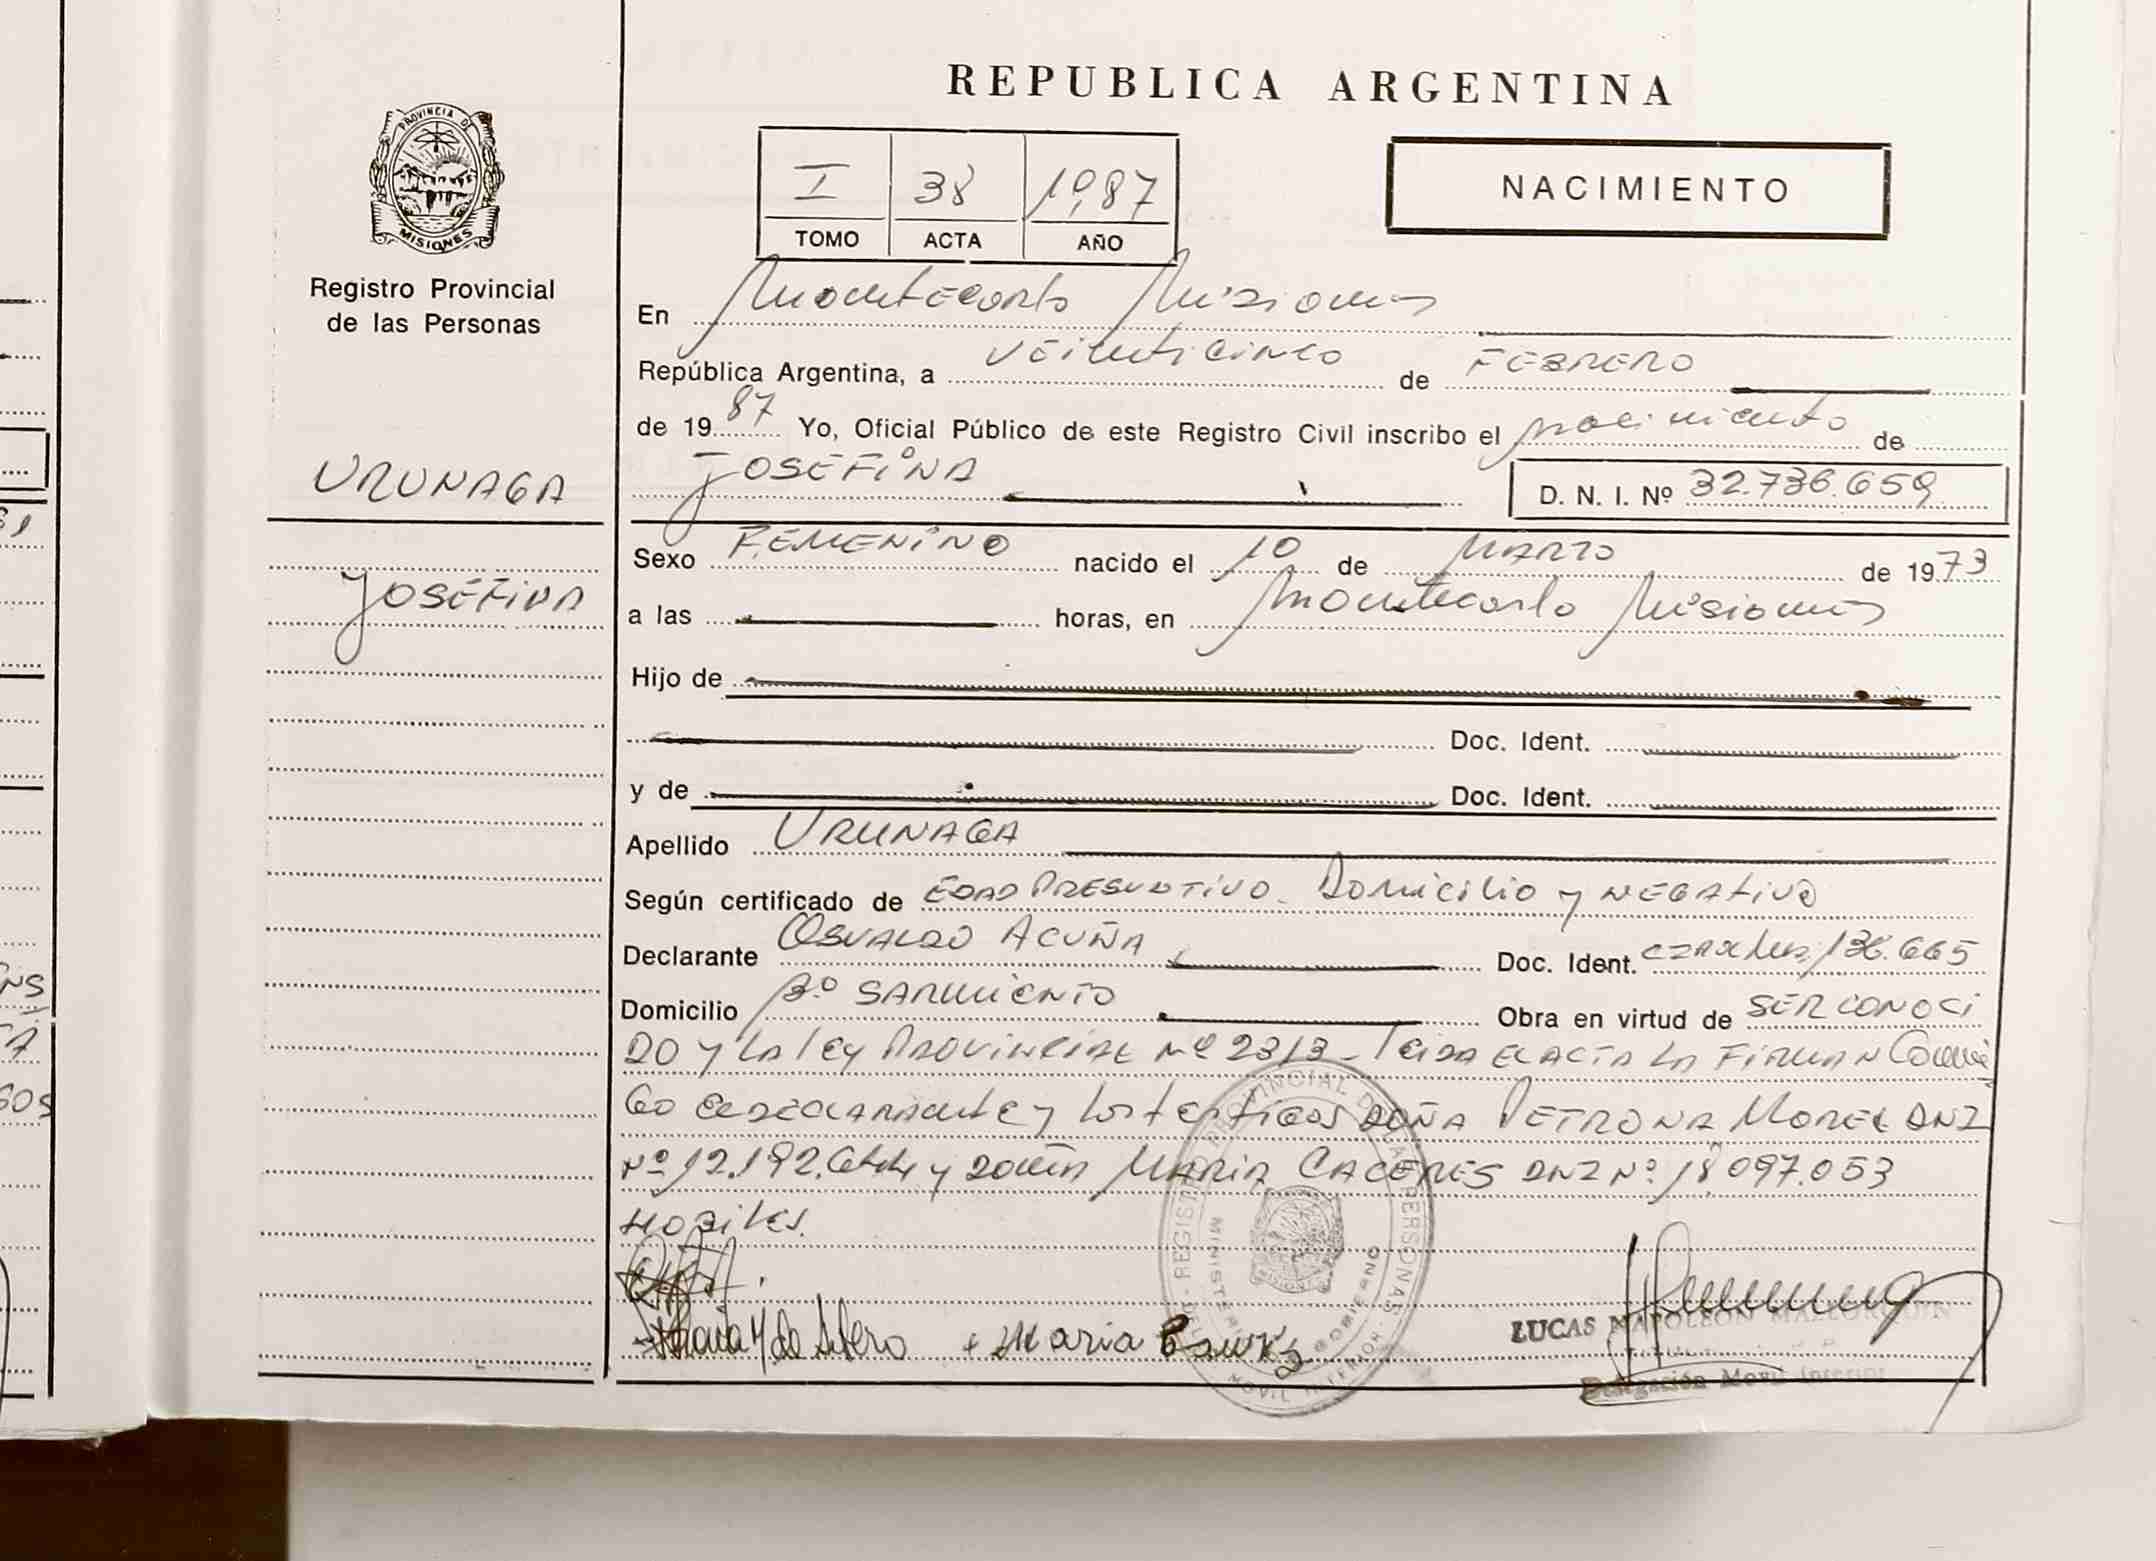 REPUBLICA ARGENTINA
PROVINCIA DE
MISIONES
Registro Provincial
de las Personas
I 38 1987
TOMO ACTA AÑO
NACIMIENTO
En Montecarlo Misiones
República Argentina, a veinticinco de FEBRERO
de 19 87 Yo, Oficial Público de este Registro Civil inscribo el nacimiento de
URUNAGA
JOSEFINA D. N. I. Nº 32.736.659
Sexo FEMENINO nacido el 10 de MARZO de 19 73
JOSEFINA
a las horas, en Montecarlo Misiones
Hijo de
Doc. Ident.
y de Doc. Ident.
Apellido URUNAGA
Según certificado de EDAD PRESUNTIVO. Domicilio y NEGATIVO
Declarante OSVALDO ACUÑA Doc. Ident. 136.665
Domicilio Bº SARMIENTO Obra en virtud de SER CONOCI
DO y La ley PROVINCIAL Nº 2313 - leida EL ACTA LA FIRMAN Conmi
GO el declarante y los testigos DOÑA PETRONA MOREL DNI
Nº 12.192. y doña MARIA CACERES DNI Nº 18.097.053
HABILES.
REGISTRO PROVINCIAL DE LAS PERSONAS
MINISTERIO GOBIERNO
MOVIL INTERIOR
Maria
LUCAS NAPOLEON MALLORQUIN
Delegación Movil Interior